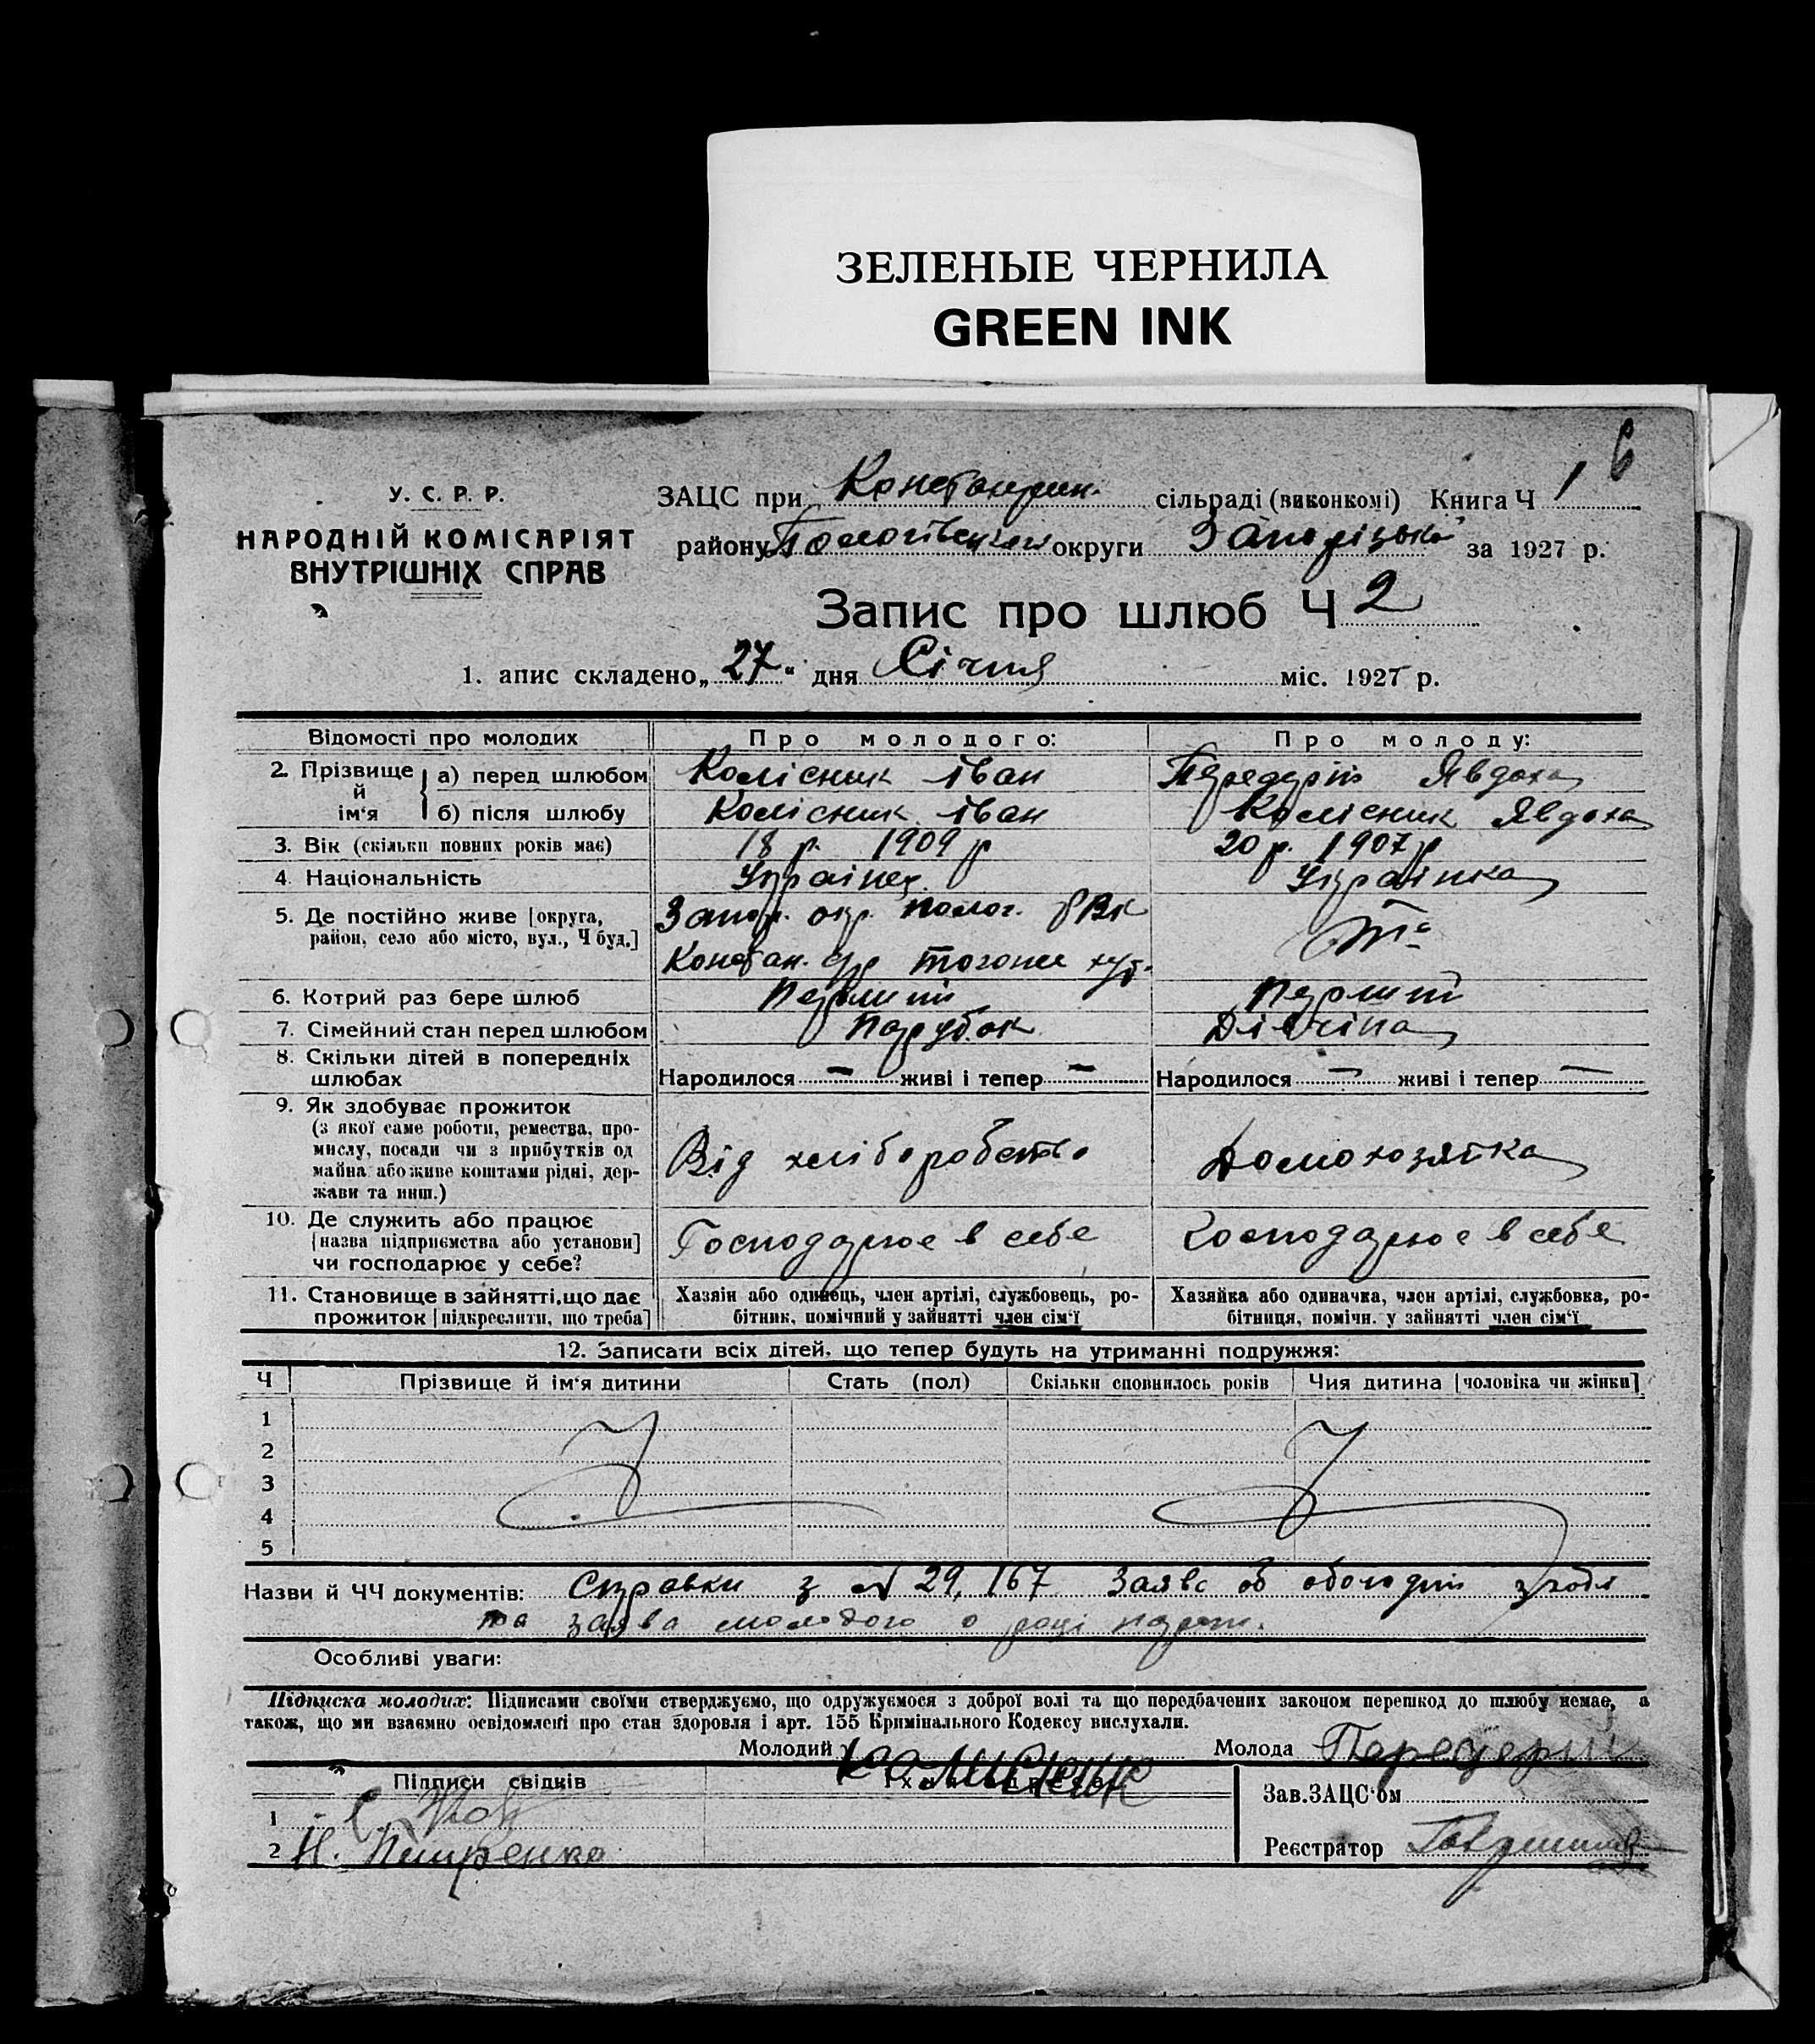 ЗЕЛЕНЫЕ ЧЕРНИЛА
GREEN INK
6
У. С. Р. Р.
НАРОДНІЙ КОМІСАРІЯТ
ВНУТРІШНІХ СПРАВ
ЗАЦС при Констанрин. сільраді (виконкомі) Книга Ч 1
району Пологівського округи Запорізька за 1927 р.
Запис про шлюб Ч 2
1. апис складено „27“ дня Січня міс. 1927 р.
Відомості про молодих Про молодого: Про молоду:
2. Прізвище й ім‘я а) перед шлюбом Колісник Іван Передерій Явдоха
б) після шлюбу Колісник Іван Колісник Явдоха
3. Вік (скільки повних років має) 18 р. 1909 р 20 р. 1907 р
4. Національність Українец. Українка
5. Де постійно живе [округа, район, село або місто, вул., Ч буд.] Запор. окр. полог. РВК
Констан. с/р хут. Те
6. Котрий раз бере шлюб Перший Перший
7. Сімейний стан перед шлюбом Парубок Дівчина
8. Скільки дітей в попередніх шлюбах Народилося — живі і тепер — Народилося — живі і тепер —
9. Як здобуває прожиток
(з якої саме роботи, ремества, про-
мислу, посади чи з прибутків од
майна або живе коштами рідні, дер-
жави та инш.) Від хліборобство Домохозяйка
10. Де служить або працює
[назва підприємства або установи]
чи господарює у себе? Господарює в себе Господарює в себе
11. Становище в зайнятті, що дає
прожиток [підкреслити, що треба] Хазяїн або одинець, член артілі, службовець, ро-
бітник, помічний у зайнятті член сім‘ї Хазяйка або одиначка, член артілі, службовка, ро-
бітниця, помічн. у зайнятті член сім‘ї
12. Записати всіх дітей, що тепер будуть на утриманні подружжя:
Ч Прізвище й ім‘я дитини Стать (пол) Скільки сповнилось років Чия дитина [чоловіка чи жінки]
1
2
3
4
5
Назви й ЧЧ документів: Справки з N 29, 167 Заява об обоюдній згоді
та заява молодого о році
Особливі уваги:
Підписка молодих: Підписами своїми стверджуємо, що одружуємося з доброї волі та що передбачених законом перешкод до шлюбу немає, а
також, що ми взаємно освідомлені про стан здоровля і арт. 155 Кримінального Кодексу вислухали.
Молодий Колисник Молода Передерий
Підписи свідків Їхня адреса Зав. ЗАЦС‘ом
1
2 Н. Петренко Реєстратор